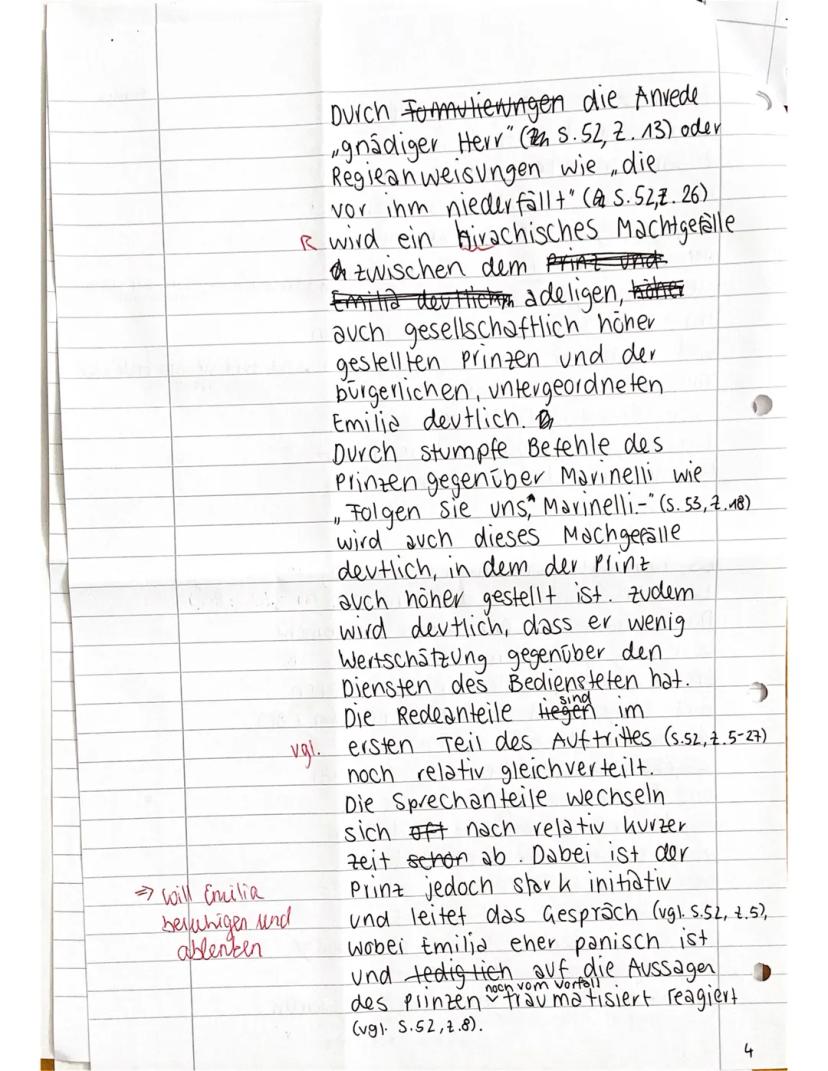 Durch Formulierungen die Anrede
„gnädiger Herr" (S. 52, Z. 13) oder
Regieanweisungen wie „die
vor ihm niederfällt" (S. 52, Z. 26)
R wird ein hirachisches Machtgefälle
zwischen dem Prinz und
Emilia deutlich adeligen, höher
auch gesellschaftlich höher
gestellten Prinzen und der
bürgerlichen, untergeordneten
Emilia deutlich.
Durch stumpfe Befehle des
Prinzen gegenüber Marinelli wie
„Folgen Sie uns, Marinelli.-" (S. 53, Z. 18)
wird auch dieses Machgefälle
deutlich, in dem der Prinz
auch höher gestellt ist. Zudem
wird deutlich, dass er wenig
Wertschätzung gegenüber den
Diensten des Bediensteten hat.
Die Redeanteile liegen sind im
vgl. ersten Teil des Auftrittes (S. 52, Z. 5-27)
noch relativ gleichverteilt.
Die Sprechanteile wechseln
sich oft nach relativ kurzer
Zeit schon ab. Dabei ist der
⇒ will Emilia Prinz jedoch stark initiativ
beruhigen und und leitet das Gespräch (vgl. S. 52, Z. 5),
ablenken wobei Emilia eher panisch ist
und lediglich auf die Aussagen
des Prinzen noch vom Vorfall traumatisiert reagiert
(vgl. S. 52, Z. 8).
4